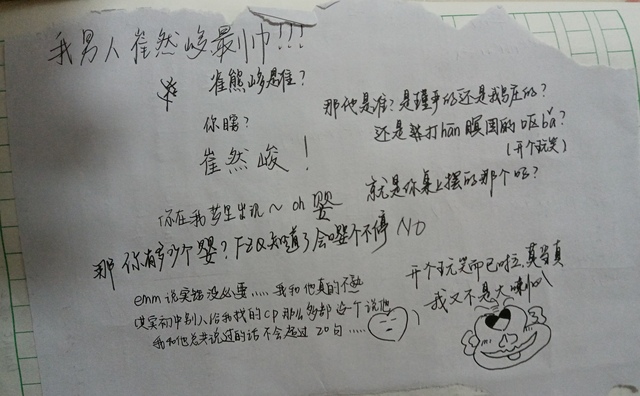 我男人崔然峻最帅!!!
崔熊峻是谁?
那他是谁?是隔手的还是我的?
你瞎?
还是禁打hān瞑国的呕bǎ?
(开个玩笑)
崔然峻!
就是你桌上摆的那个吗?
你在我梦里出现~oh 婴
那你有多少个婴?FZQ知道了会嘤个不停 NO
开个玩笑而已啦,莫当真
我又不是大喇叭
emm说实话没必要.....我和他真的不熟
其实初中别人给我找的CP那么多都逐个说他
我和他总共说过的话不会超过20句.....